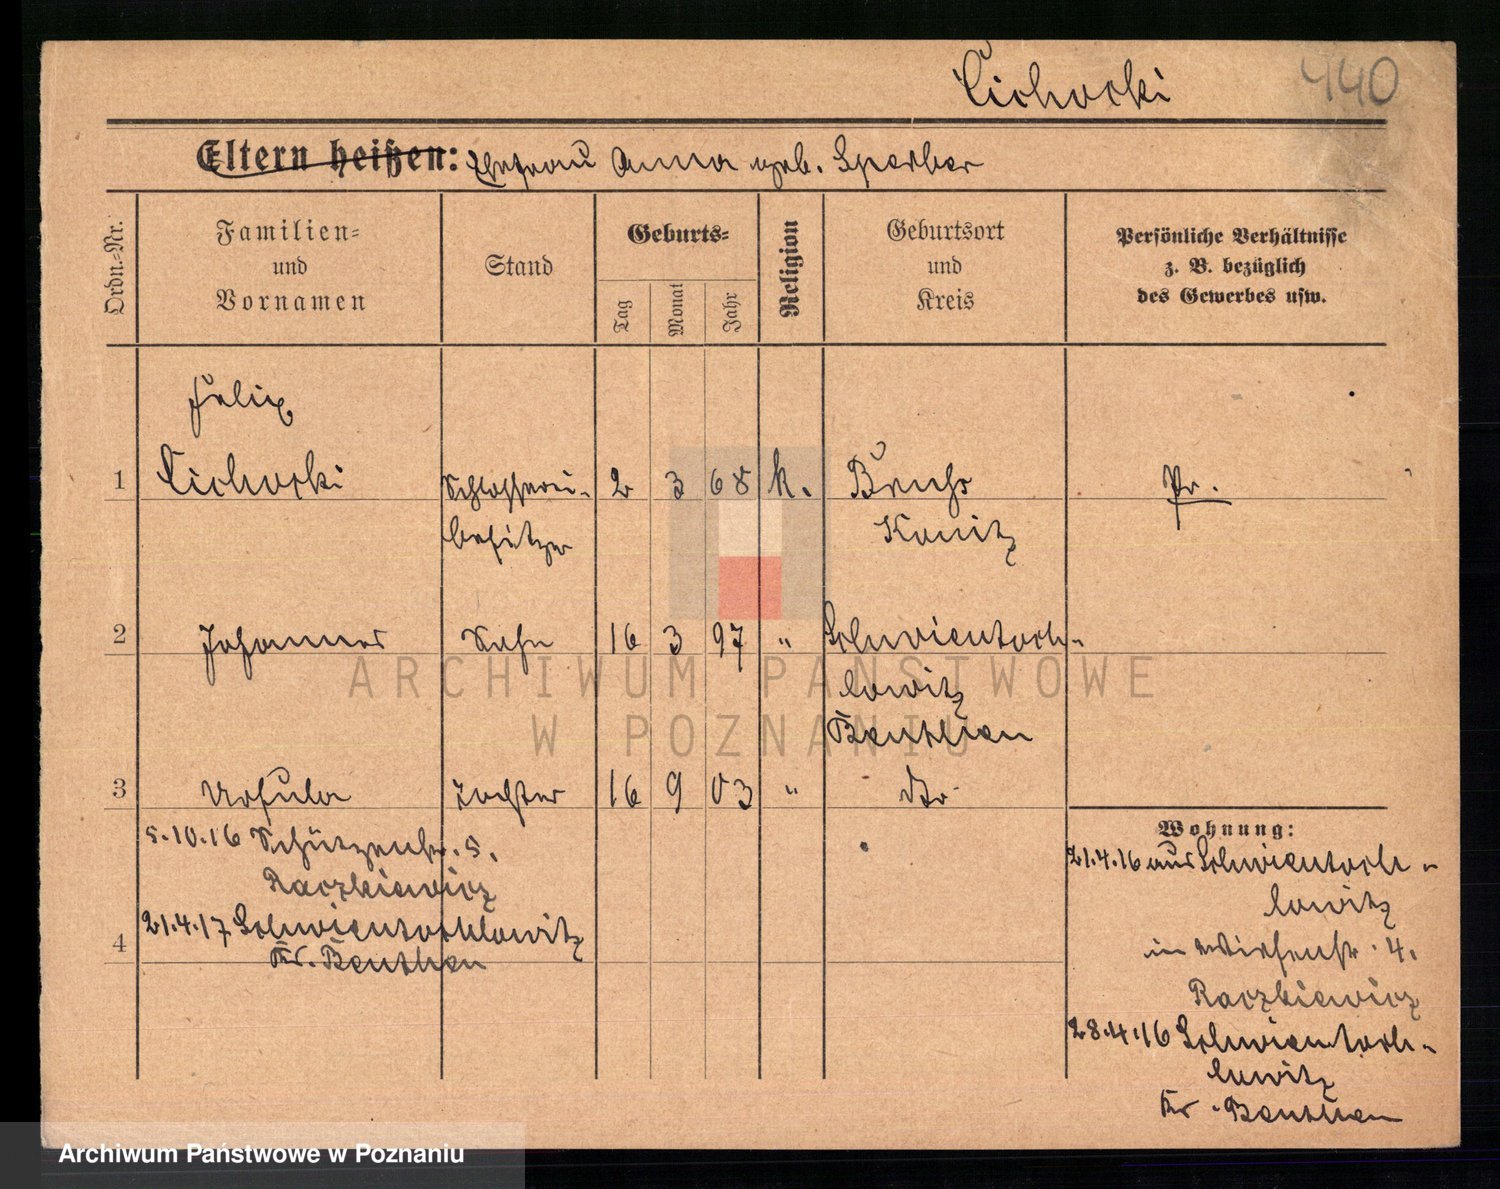 Cichocki
440
Eltern heißen: Ehefrau Anna geb. Sperber
Ordn.-Nr.
Familien-
und
Vornamen
Stand
Geburts-
Tag
Monat
Jahr
Religion
Geburtsort
und
Kreis
Persönliche Verhältnisse
z. B. bezüglich
des Gewerbes usw.
Felix
1 Cichocki Schlosserei- 2 3 68 k. Bruss Pr.
besitzer Konitz
2 Johannes Sohn 16 3 97 " Schwientoch-
lowitz
Beuthen
3 Ursula Tochter 16 9 03 " dto
5.10.16 Schützenstr. 5.
Raczkiewicz
4 21.4.17 Schwientochlowitz
Kr. Beuthen
Wohnung:
21.4.16 aus Schwientoch-
lowitz
in Wiesenstr. 4.
Raczkiewicz
28.4.16 Schwientoch-
lowitz
Kr. Beuthen
ARCHIWUM PAŃSTWOWE
W POZNANIU
Archiwum Państwowe w Poznaniu